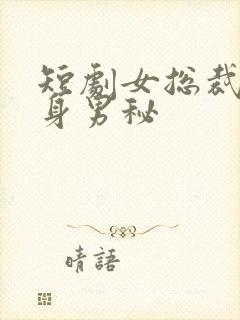 短劇女总裁
身男秘
晴語